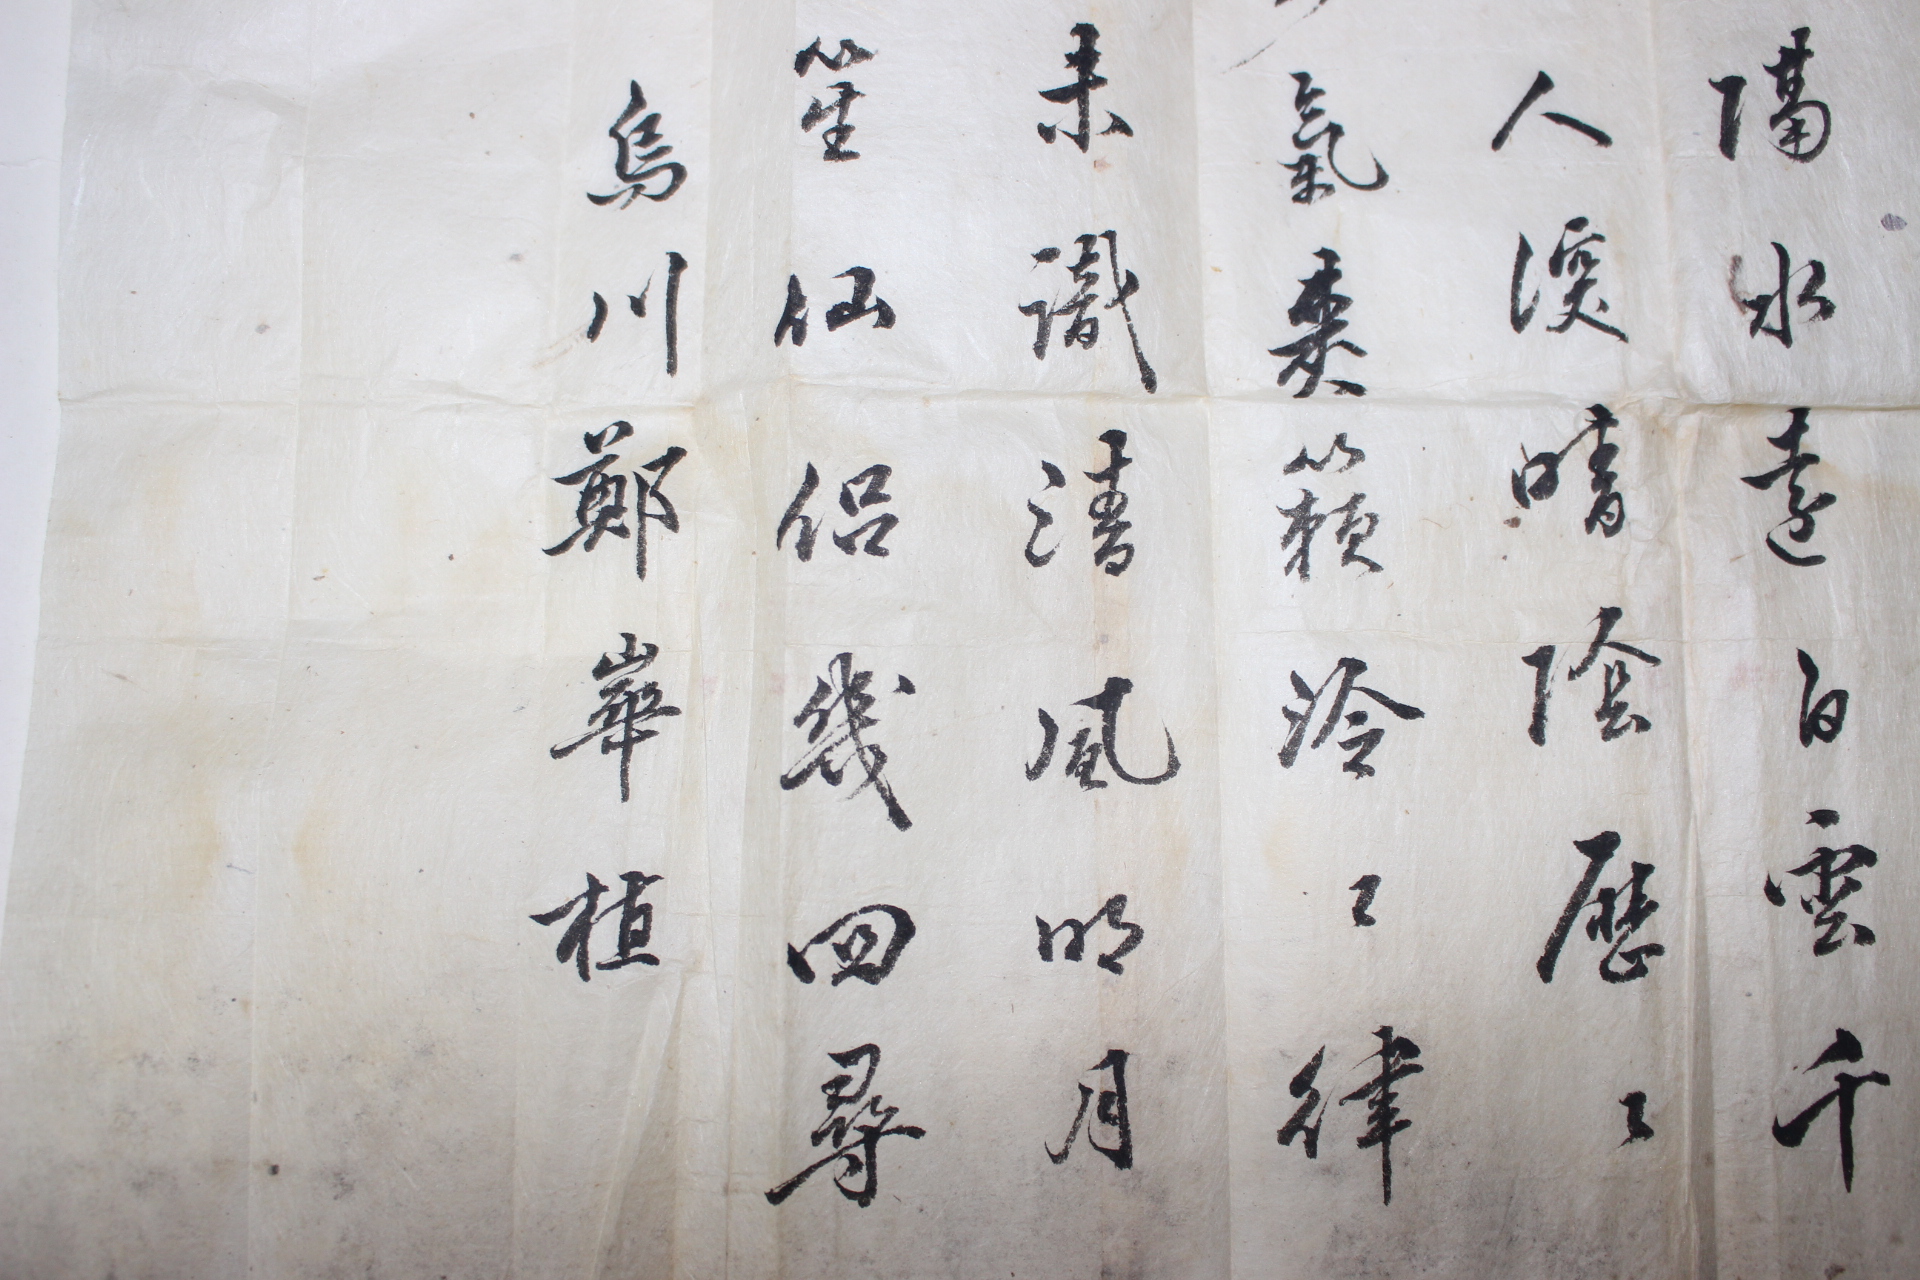 隔水遠白雲千
人溪晴陰歷〻
氣爽籟泠〻律
未識清風明月
笙仙侶幾回尋
烏川鄭崋植